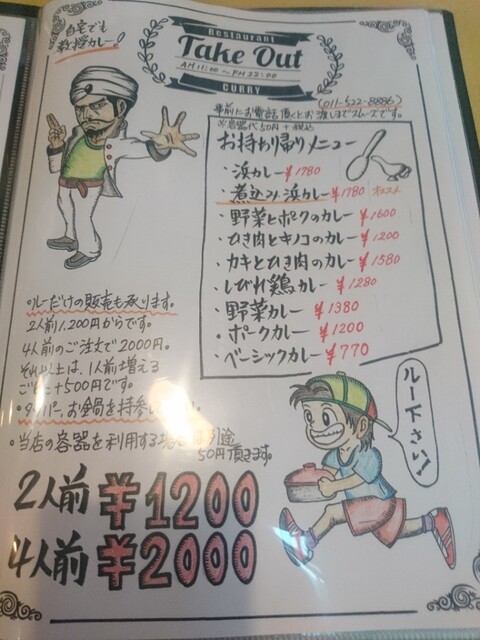 自宅でも
教授カレー!
Restaurant
Take Out
AM 11:00 ~ PM 22:00
CURRY
(011-522-8886)
事前にお電話頂くとお渡しまでスムーズです。
※容器代50円+税込
お持ち帰りメニュー
・浜カレー ¥1780
・煮込み浜カレー ¥1780 オススメ
・野菜とポークのカレー ¥1600
・ひき肉とキノコのカレー ¥1200
・カキとひき肉のカレー ¥1580
・しびれ鶏カレー ¥1280
・野菜カレー ¥1380
・ポークカレー ¥1200
・ベーシックカレー ¥770
・ルーだけの販売も承ります。
2人前1,200円からです。
4人前のご注文で2000円。
それ以上は、1人前増える
ごとに+500円です。
・タッパー、お鍋を持参
・当店の容器を利用する場合 別途
50円頂きます。
ルー下さい!
2人前 ¥1200
4人前 ¥2000